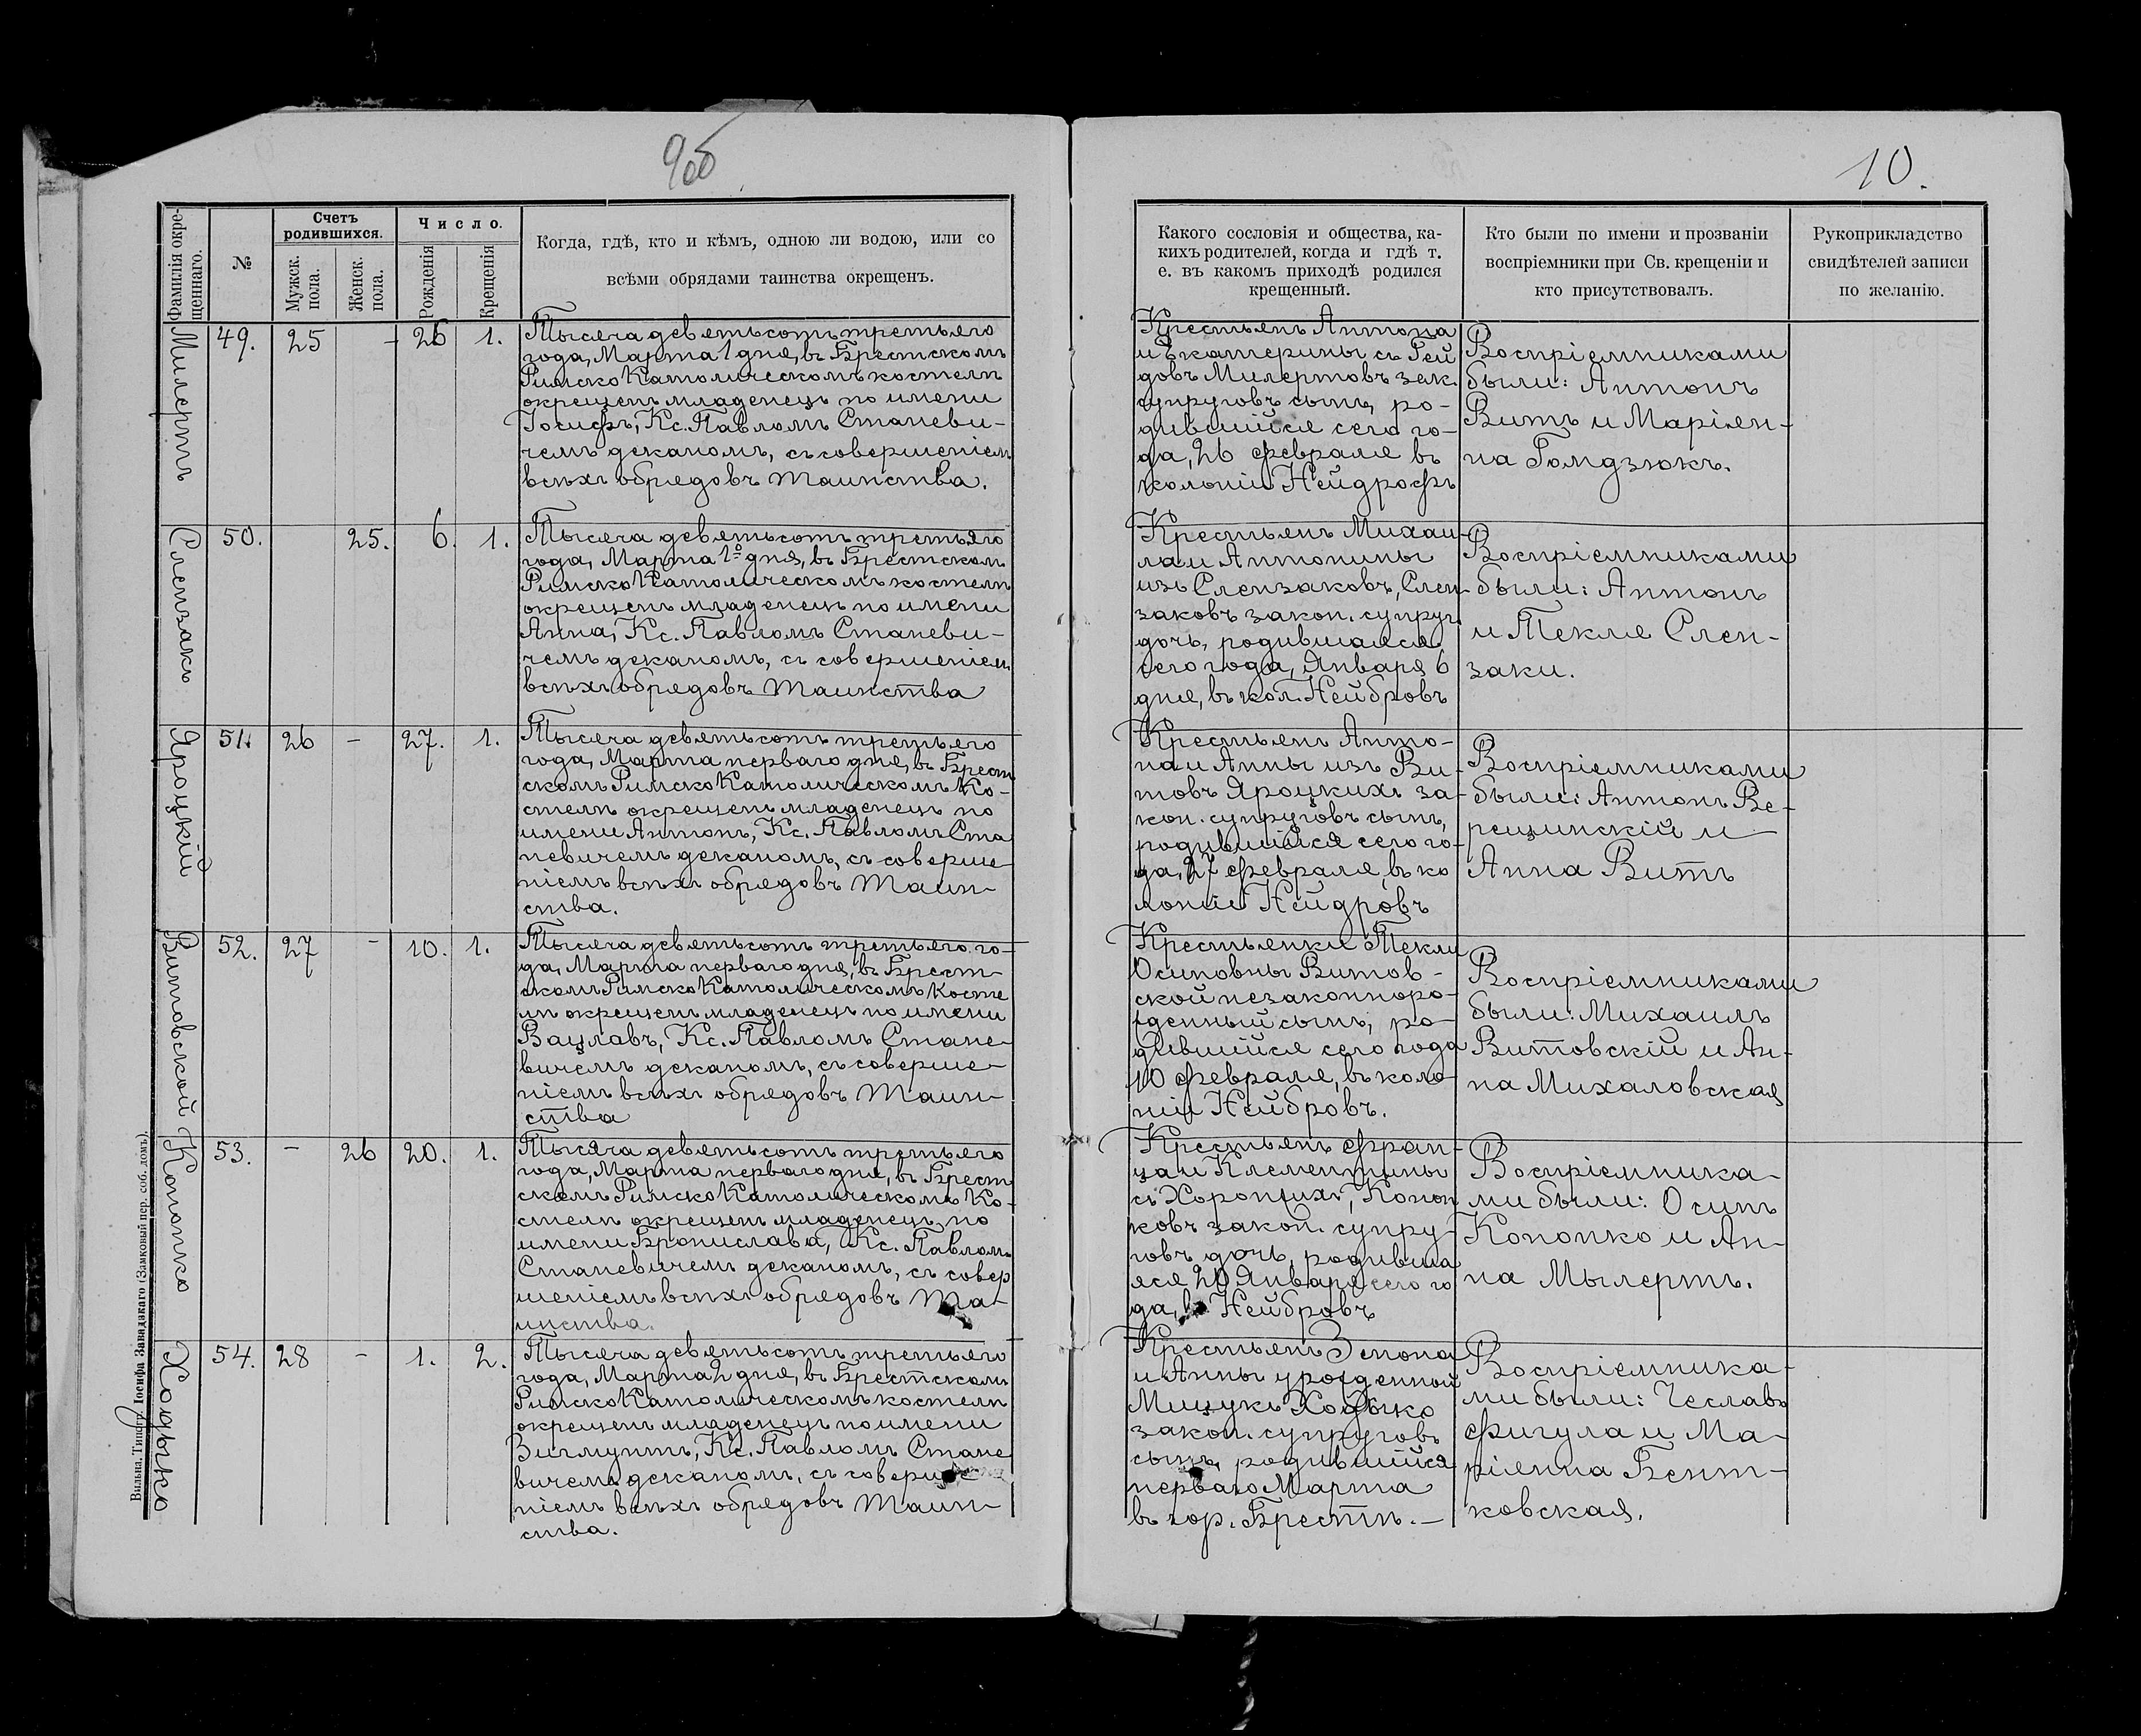 9об
10.
Фамилія окре-
щеннаго.
№
Счетъ
родившихся.
Мужск.
пола.
Женск.
пола.
Число.
Рожденія
Крещенія
Когда, гдѣ, кто и кѣмъ, одною ли водою, или со
всѣми обрядами таинства окрещенъ.
Какого сословія и общества, ка-
кихъ родителей, когда и гдѣ т.
е. въ какомъ приходѣ родился
крещенный.
Кто были по имени и прозванiи
воспріемники при Св. крещеніи и
кто присутствовалъ.
Рукоприкладство
свидѣтелей записи
по желанію.
Милертъ
49. 25 - 26 1.
Тысяча девятьсотъ третьяго
года, Марта 1 дня, въ Брестскомъ
РимскоКатолическомъ костелѣ
окрещенъ младенецъ по имени
Іосифъ, Кс. Павломъ Станеви-
чемъ деканомъ, съ совершеніем
всѣхъ обрядовъ Таинства.
Крестьянъ Антона
и Екатерины съ Гей
довъ Милертовъ зак.
супруговъ сынъ, ро-
дившійся сего го-
да, 26 февраля въ
колоніи Нейдрофъ
Воспріемниками
были: Антонъ
Витъ и Маріян-
на Гомдзюкъ.
Слензакъ
50. 25. 6. 1.
Тысяча девятьсотъ третьяго
года, Марта 1º дня, въ Брестском
РимскоКатолическомъ костелѣ
окрещенъ младенецъ по имени
Анна, Кс. Павломъ Станеви-
чемъ деканомъ, съ совершеніем
всѣхъ обрядовъ Таинства
Крестьянъ Михаи
ла и Антонины
изъ Слензаковъ, Слен-
заковъ закон. супруг.
дочь, родившаяся
сего года, Января 6
дня, въ кол. Нейбровъ
Воспріемниками
были: Антонъ
и Текля Слен-
заки.
Яроцкій
51. 26 - 27. 1.
Тысяча девятьсотъ третьяго
года, Марта перваго дня, въ Брест
скомъ РимскоКатолическомъ Ко-
стелѣ окрещенъ младенецъ по
имени Антонъ, Кс. Павломъ Ста
невичемъ деканомъ, съ соверше-
ніемъ всѣхъ обрядовъ Таин-
ства.
Крестьянъ Анто-
на и Анны изъ Ви-
товъ Яроцкихъ за-
кон. супруговъ сынъ,
родившійся сего го-
да, 27 февраля, въ ко
лоніи Нейдровъ
Воспріемниками
были: Антонъ Ве-
рещинскій и
Анна Витъ
Витовской
52. 27 - 10. 1.
Тысяча девятьсотъ третьяго го-
да, Марта перваго дня, въ Брест-
скомъ РимскоКатолическомъ Косте
лѣ окрещенъ младенецъ по имени
Вацлавъ, Кс. Павломъ Стане-
вичемъ деканомъ, съ соверше-
ніемъ всѣхъ обрядовъ Таин-
ства
Крестьянки Текли
Осиповны Витов-
ской незаконноро-
жденный сынъ, ро-
дившійся сего года
10 февраля, въ коло-
ніи Нейбровъ.
Воспріемниками
были: Михаилъ
Витовскій и Ан-
на Михаловская
Кононко
53. - 26 20. 1.
Тысяча девятьсотъ третьяго
года, Марта перваго дня, въ Брест
скомъ РимскоКатолическомъ Ко-
стелѣ окрещенъ младенецъ по
имени Брониславa, Кс. Павломъ
Станевичемъ деканомъ, съ совер
шеніемъ всѣхъ обрядовъ Та-
инства.
Крестьянъ Фран-
ца и Клементины
съ Хоронжихъ, Конон
ковъ закон. супру-
говъ дочь, родивша
яся 20 Января сего го
да, въ Нейбровъ
Воспріемника-
ми были: Осипъ
Кононко и Ан-
на Мылертъ.
Ходыко
54. 28 - 1. 2.
Тысяча девятьсотъ третьяго
года, Марта 2 дня, въ Брестскомъ
РимскоКатолическомъ костелѣ
окрещенъ младенецъ по имени
Зигмунтъ, Кс. Павломъ Стане
вичемъ деканомъ, съ соверше-
ніемъ всѣхъ обрядовъ Таин-
ства.
Крестьянъ Зенона
и Анны урожденной
Мищукъ Ходыко
закон. супруговъ
сынъ, родившійся
перваго Марта
въ гор. Брестѣ. -
Воспріемника-
ми были: Чеславъ
Фигула и Ма-
ріянна Бент-
ковская.
Вильна. Типогр. Іосифа Завадзкаго (Замковый пер. соб. домъ).